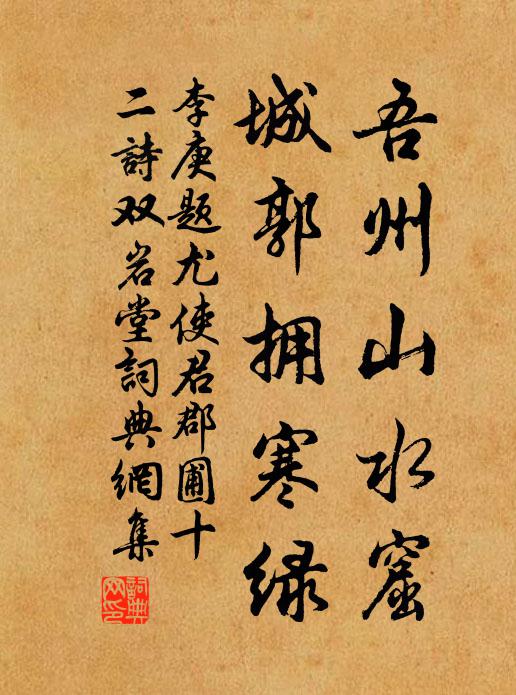 吾州山水窟
城郭拥寒绿
李庚题尤使君郡圃十
二詩双岩堂詞典網集
詞典網印